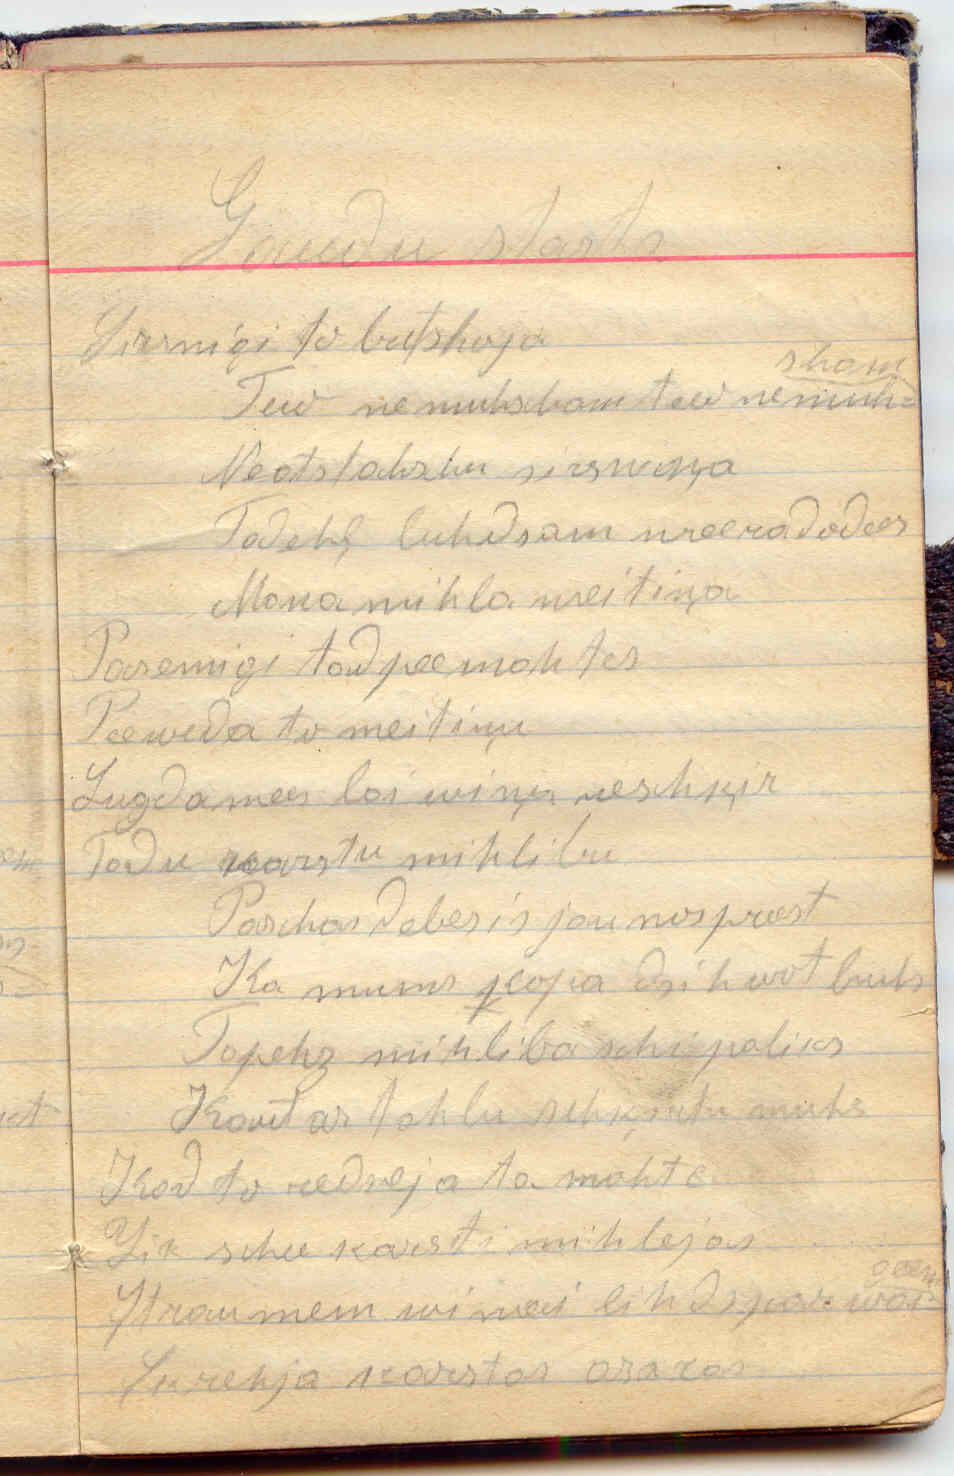 Gaudu starts
Sirsnigi to butshoja
sham
Tew ne muhscham tew nemuh=
Neatstahshu sirsniņa
Tadehļ luhdsam neeradodees
Mana mihla meitiņa
Pasemigi tad pee mahtes
Peeweda to meitiņu
Lugdamees lai wiņi neschķir
Tadu karstu mihlibu
Paschas debesis jau nospreest
Ka mums kopa dsihwot buhs
Tapehz mihliba schi paliks
Kaut ar tahlu schķirtu muhs
Kad to redseja ta mahte
Zik schee karsti mihlejas
Straumem winai lihds par wai=
geem
Skrehja karstas asaras